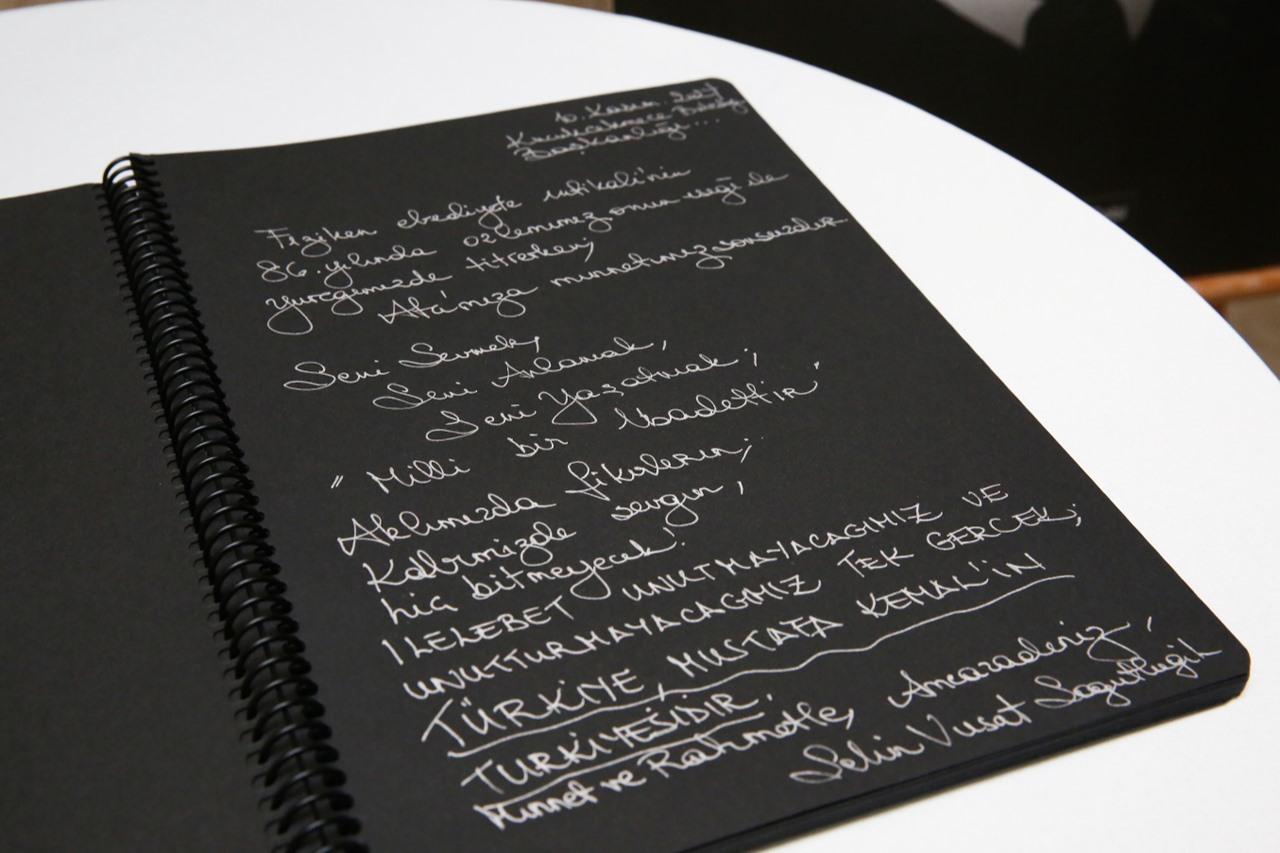 10. Kasım. 2024
Küçükçekmece Belediye
Başkanlığı...
Fiziken ebediyete intikali'nin
86. yılında özlemimiz onun ışığı ile
yüreğimizde titrerken;
Ata'mıza minnetimiz sonsuzdur
Seni Sevmek,
Seni Anlamak,
Seni Yaşatmak;
" Milli bir İbadettir"
Aklımızda fikirlerin;
Kalbimizde sevgin,
hiç bitmeyecek.
İLELEBET UNUTMAYACAĞIMIZ VE
UNUTTURMAYACAĞIMIZ TEK GERÇEK;
TÜRKİYE, MUSTAFA KEMAL'İN
TÜRKİYESİDİR.
Minnet ve Rahmetle, Amcazadeniz,
Selin Vusat